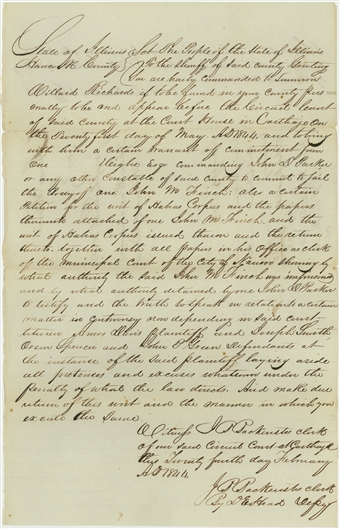 State of Illinois } Sct. The People of the State of Illinois
Hancock County } To the Sheriff of said county Greeting
You are hereby commanded to summon
Willard Richards if to be found in your county pers
onally to be and appear before the Circuit court
of said county at the Court House in Carthage On
the Twenty first day of May A D 1844, and to bring
with him a certain warrant of commitment from
One Height Esqr commanding John D Parker
or any other Constable of said county to commit to jail
the body of one John M Finch: also a certain
Petition for the writ of Habas Corpus and the papers
thereunto attached of one John M Finch, and the
writ of Habas Corpus issued thereon and the return
thereto together with all papers in his office as clerk
of the Municipal Court of the City of Nauvoo showing by
what authority the said John M Finch was imprisoned
and by what authority detained by one John D Parker
to testify and the truth to speak in relation to a certain
matter in controversy now depending in said court
between Amos Davis Plaintiff and Joseph Smith
Orson Spencer and John P Green Defendants at
the instance of the said plaintiff laying aside
all pretences and excuses whatever under the
penalty of what the law directs. And make due
return of this writ and the manner in which you
execute the same
Witness J B Backenstos clerk
of our said Circuit Court at Carthage
this Twenty fourth day February
A D 1844
J B Backenstos clerk
By D E Head Depy